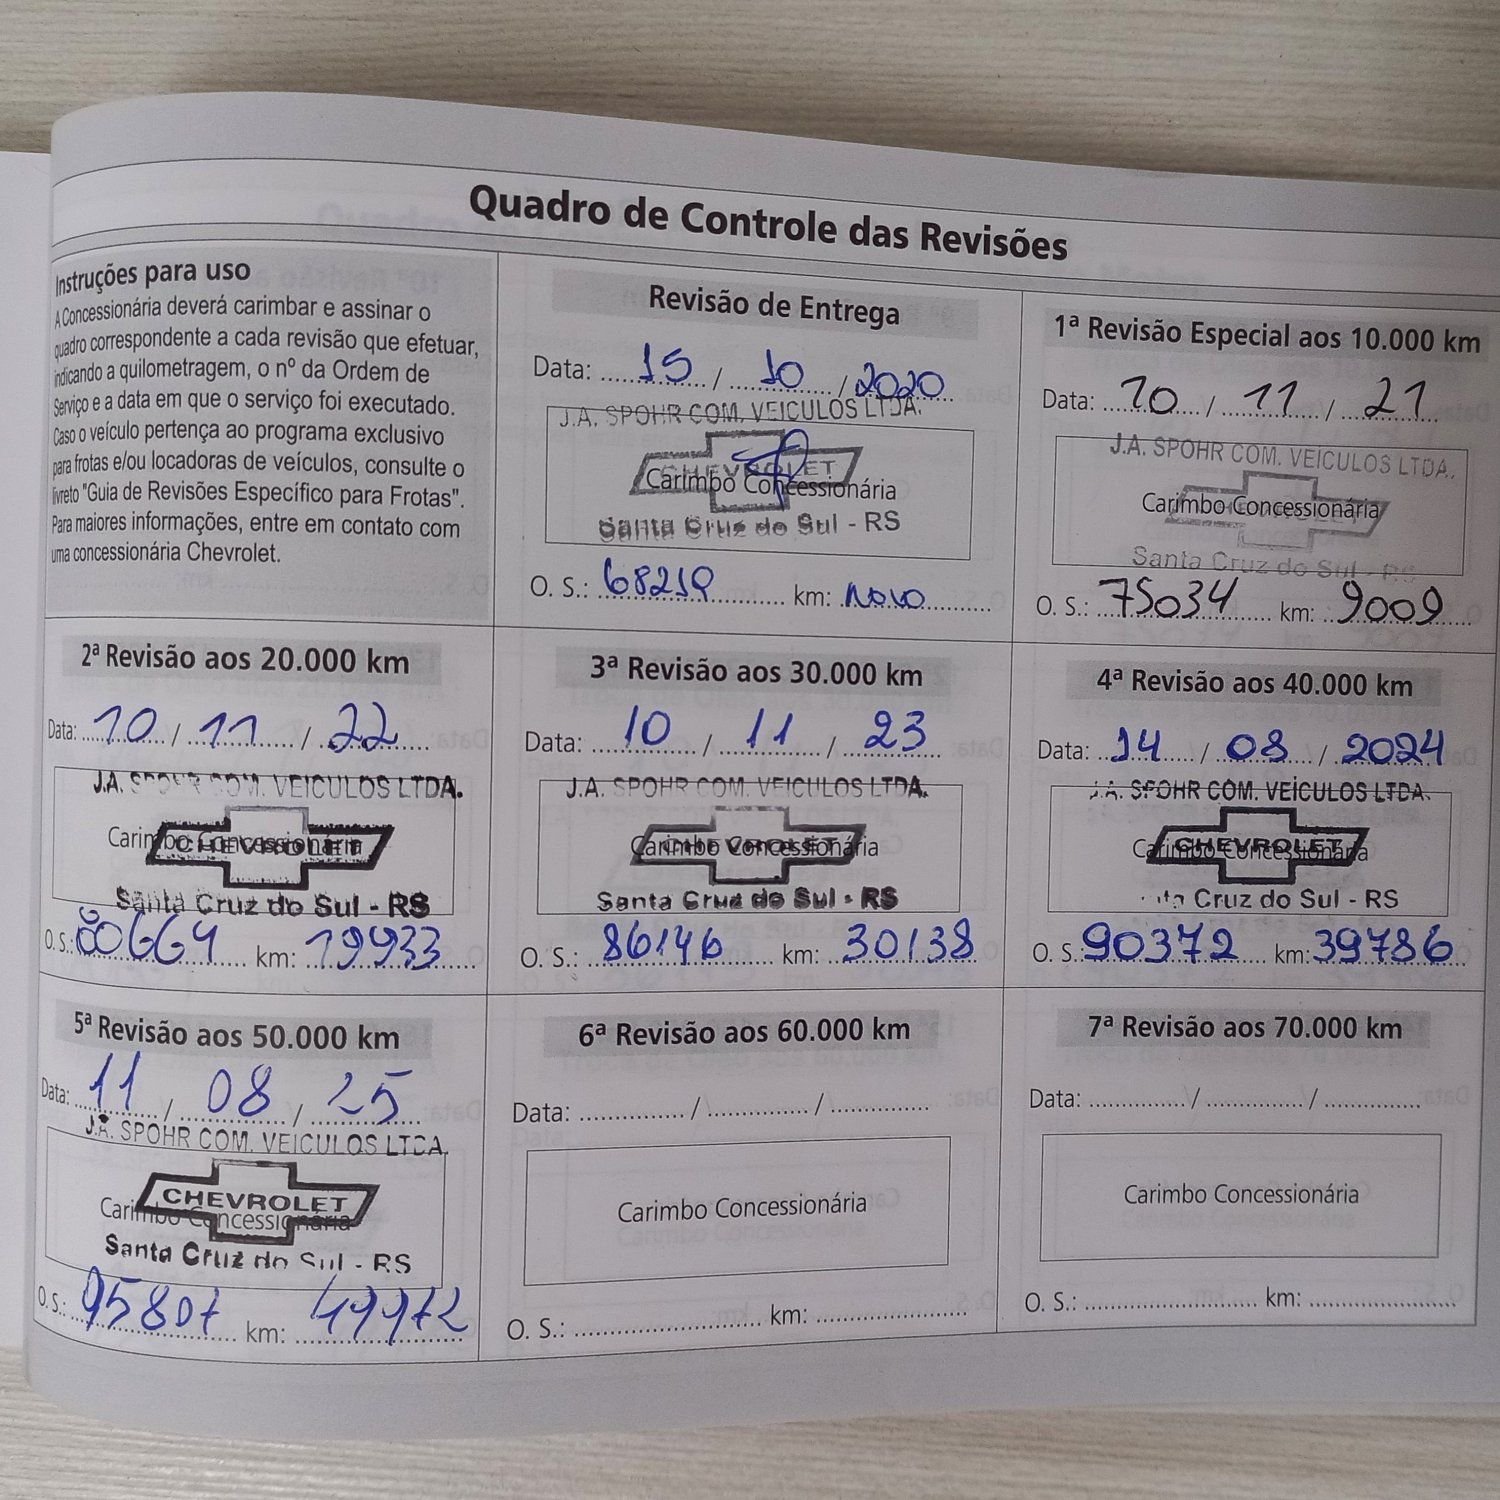 Quadro de Controle das Revisões
Instruções para uso
A Concessionária deverá carimbar e assinar o
quadro correspondente a cada revisão que efetuar,
indicando a quilometragem, o nº da Ordem de
Serviço e a data em que o serviço foi executado.
Caso o veículo pertença ao programa exclusivo
para frotas e/ou locadoras de veículos, consulte o
livreto "Guia de Revisões Específico para Frotas".
Para maiores informações, entre em contato com
uma concessionária Chevrolet.
Revisão de Entrega
Data: 15 / 10 / 2020
J.A. SPOHR COM. VEICULOS LTDA.
CHEVROLET
Carimbo Concessionária
Santa Cruz do Sul - RS
O. S.: 68219 km: novo
1ª Revisão Especial aos 10.000 km
Data: 10 / 11 / 21
J.A. SPOHR COM. VEICULOS LTDA.
Carimbo Concessionária
Santa Cruz do Sul - RS
O. S.: 75034 km: 9009
2ª Revisão aos 20.000 km
Data: 10 / 11 / 22
J.A. SPOHR COM. VEICULOS LTDA.
Carimbo Concessionária
CHEVROLET
Santa Cruz do Sul - RS
O. S.: 80664 km: 19933
3ª Revisão aos 30.000 km
Data: 10 / 11 / 23
J.A. SPOHR COM. VEICULOS LTDA.
Carimbo Concessionária
CHEVROLET
Santa Cruz do Sul - RS
O. S.: 86146 km: 30138
4ª Revisão aos 40.000 km
Data: 14 / 08 / 2024
J.A. SPOHR COM. VEICULOS LTDA.
CHEVROLET
Carimbo Concessionária
Santa Cruz do Sul - RS
O. S.: 90372 km: 39786
5ª Revisão aos 50.000 km
Data: 11 / 08 / 25
J.A. SPOHR COM. VEICULOS LTDA.
CHEVROLET
Carimbo Concessionária
Santa Cruz do Sul - RS
O. S.: 95807 km: 49972
6ª Revisão aos 60.000 km
Data: ............... / ............... / ...............
Carimbo Concessionária
O. S.: ............... km: ...............
7ª Revisão aos 70.000 km
Data: ............... / ............... / ...............
Carimbo Concessionária
O. S.: ............... km: ...............